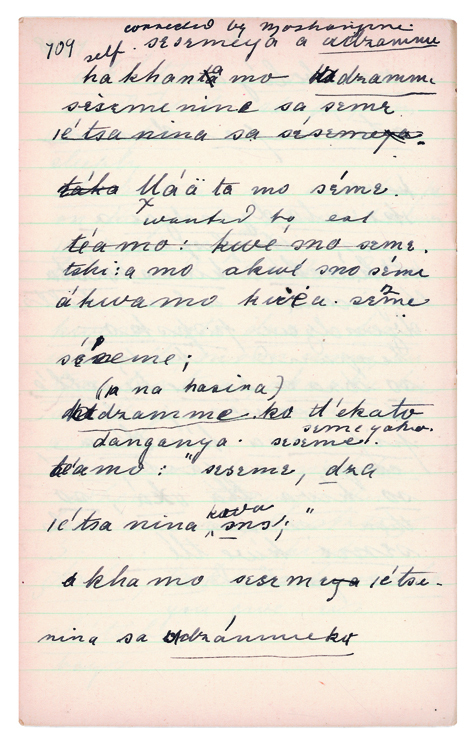 connected by Moshangini
709 sesemeya a udzamme
self
ha khanta mo udzamme
sesemenine sa seme
ιétsa nina sa sésemeya.
táka Ua'ä ta mo séme.
x wanted to eat
téamo: kwé sno seme.
tshi:a mo akwé sno séme
áhwamo kwéa. seme
séseme;
(ka na hasina)
udzamme ko tl'ekato
semeyaho.
danganya. seseme.
téamo: "seseme, dza
kova
ιétsa nina ‸ sno;"
akhamo sesemeya ιétse-
nina sa udzámmeko